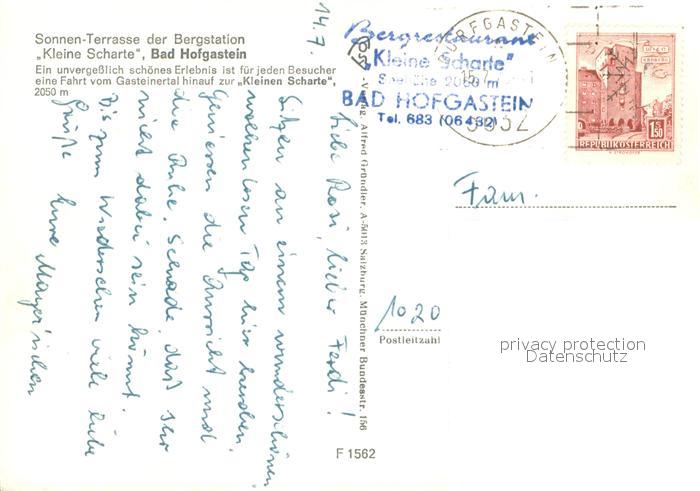 Sonnen-Terrasse der Bergstation
„Kleine Scharte", Bad Hofgastein
Ein unvergeßlich schönes Erlebnis ist für jeden Besucher
eine Fahrt vom Gasteinertal hinauf zur „Kleinen Scharte",
2050 m
14.7.
Liebe Rosi, lieber Ferdi!
Sitzen an einem wunderschönen
wolkenlosen Tag hier heroben,
geniessen die Aussicht und
die Ruhe. Schade, daß Ihr
nicht dabei sein könnt.
Bis zum Wiedersehen viele liebe
Grüße Eure
Bergrestaurant
„Kleine Scharte"
Seehöhe 2050 m
BAD HOFGASTEIN
Tel. 683 (06432)
DORFGASTEIN
15.7.
5632
1.50
REPUBLIK ÖSTERREICH
Verlag Alfred Gründler, A-5013 Salzburg, Münchner Bundesstr. 156
Fam.
1020
Postleitzahl
privacy protection
Datenschutz
F 1562